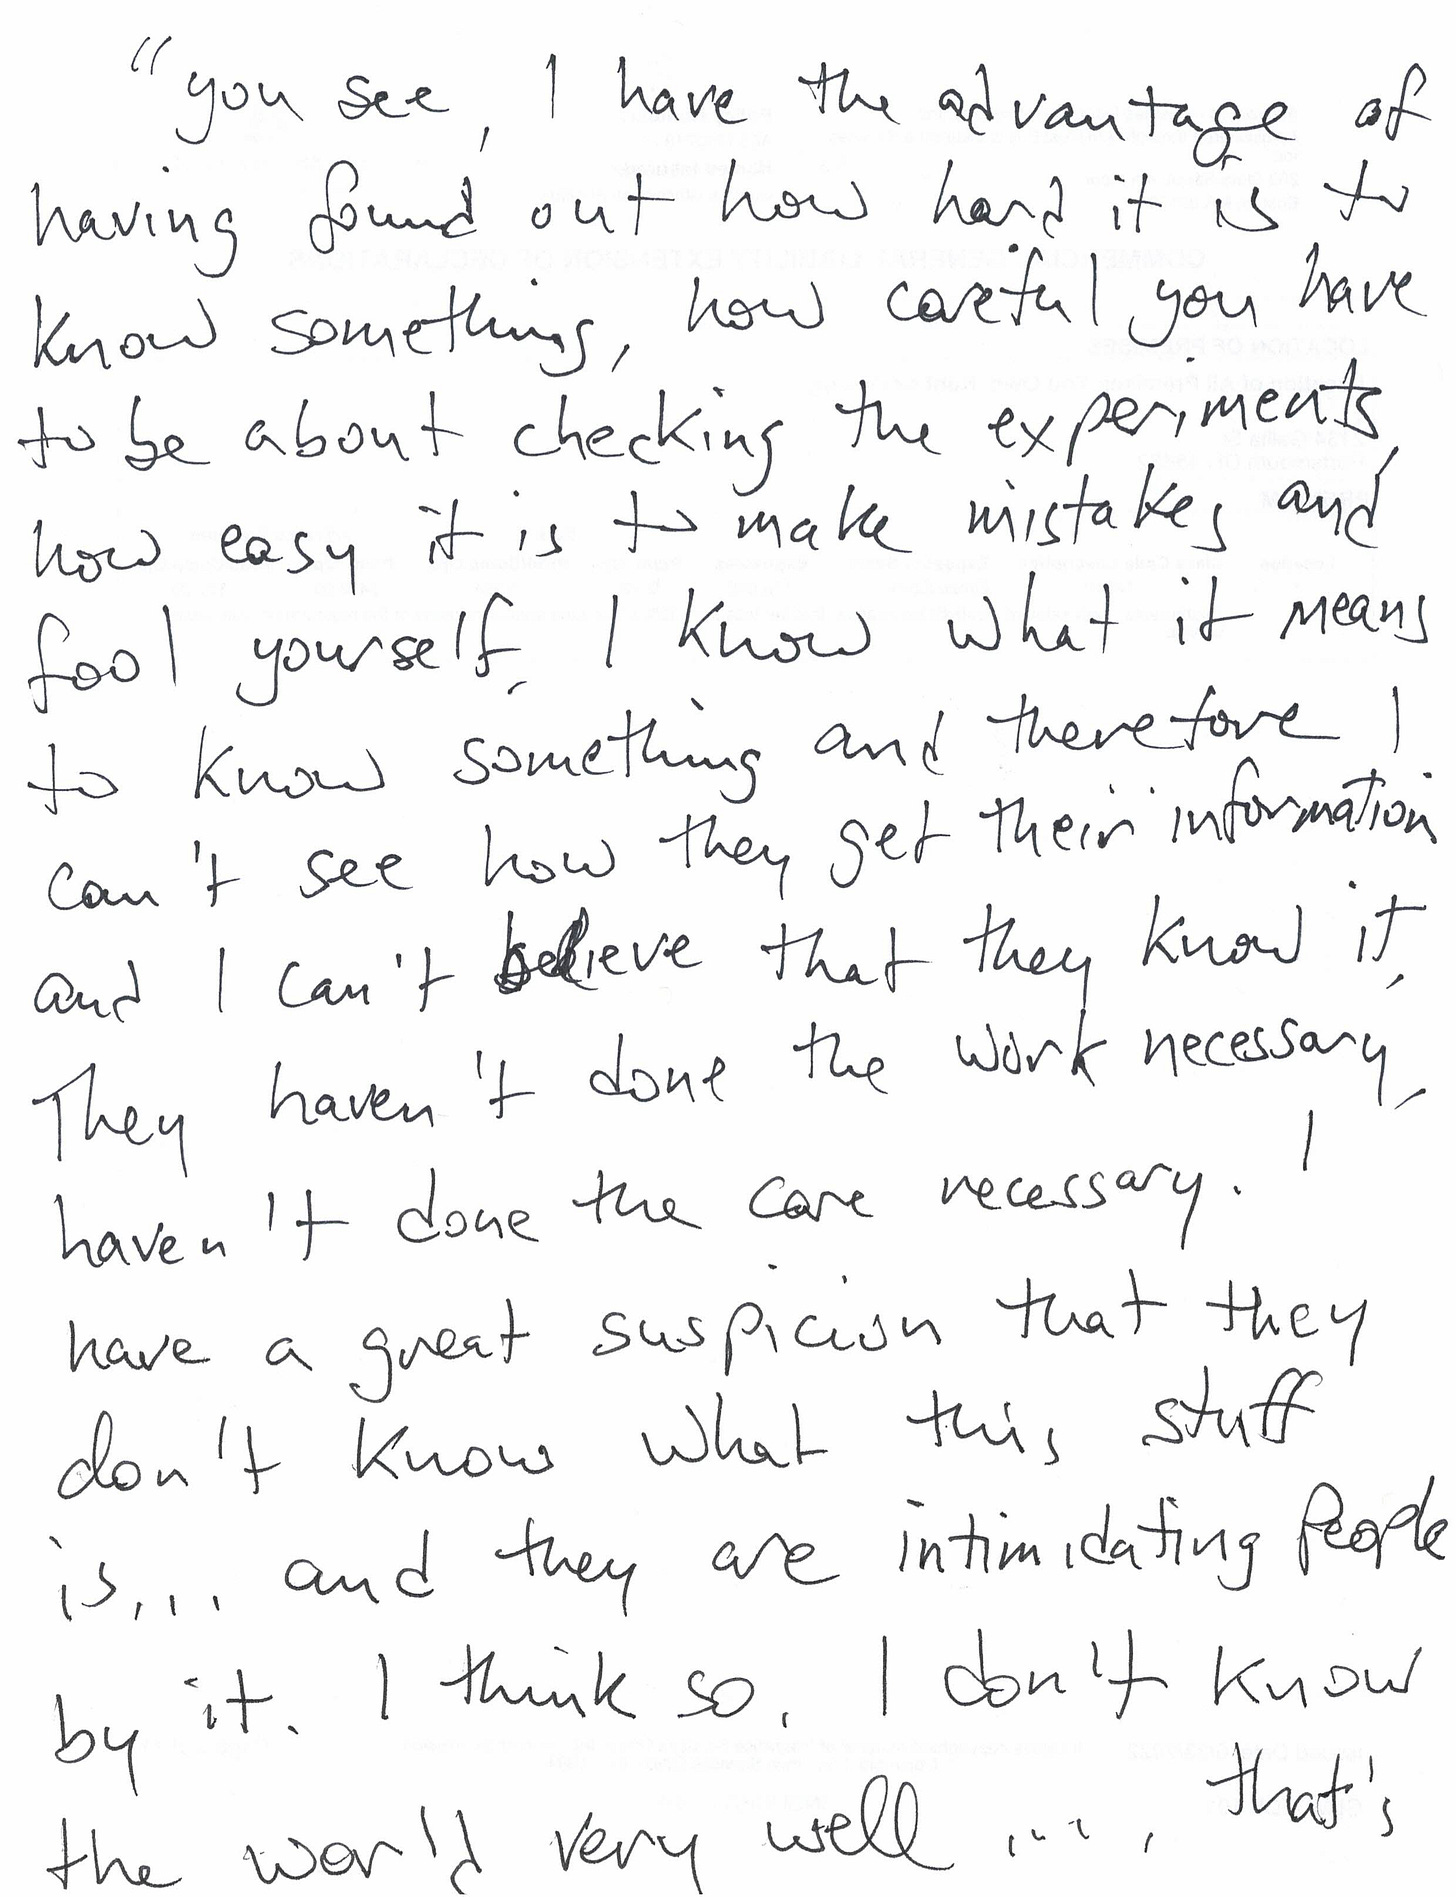 "you see, I have the advantage of
having found out how hard it is to
know something, how careful you have
to be about checking the experiments,
how easy it is to make mistakes and
fool yourself. I know what it means
to know something and therefore I
can't see how they get their information
and I can't believe that they know it,
They haven't done the work necessary,
haven't done the care necessary. I
have a great suspicion that they
don't know what this stuff
is... and they are intimidating people
by it. I think so. I don't know
the world very well .... that's